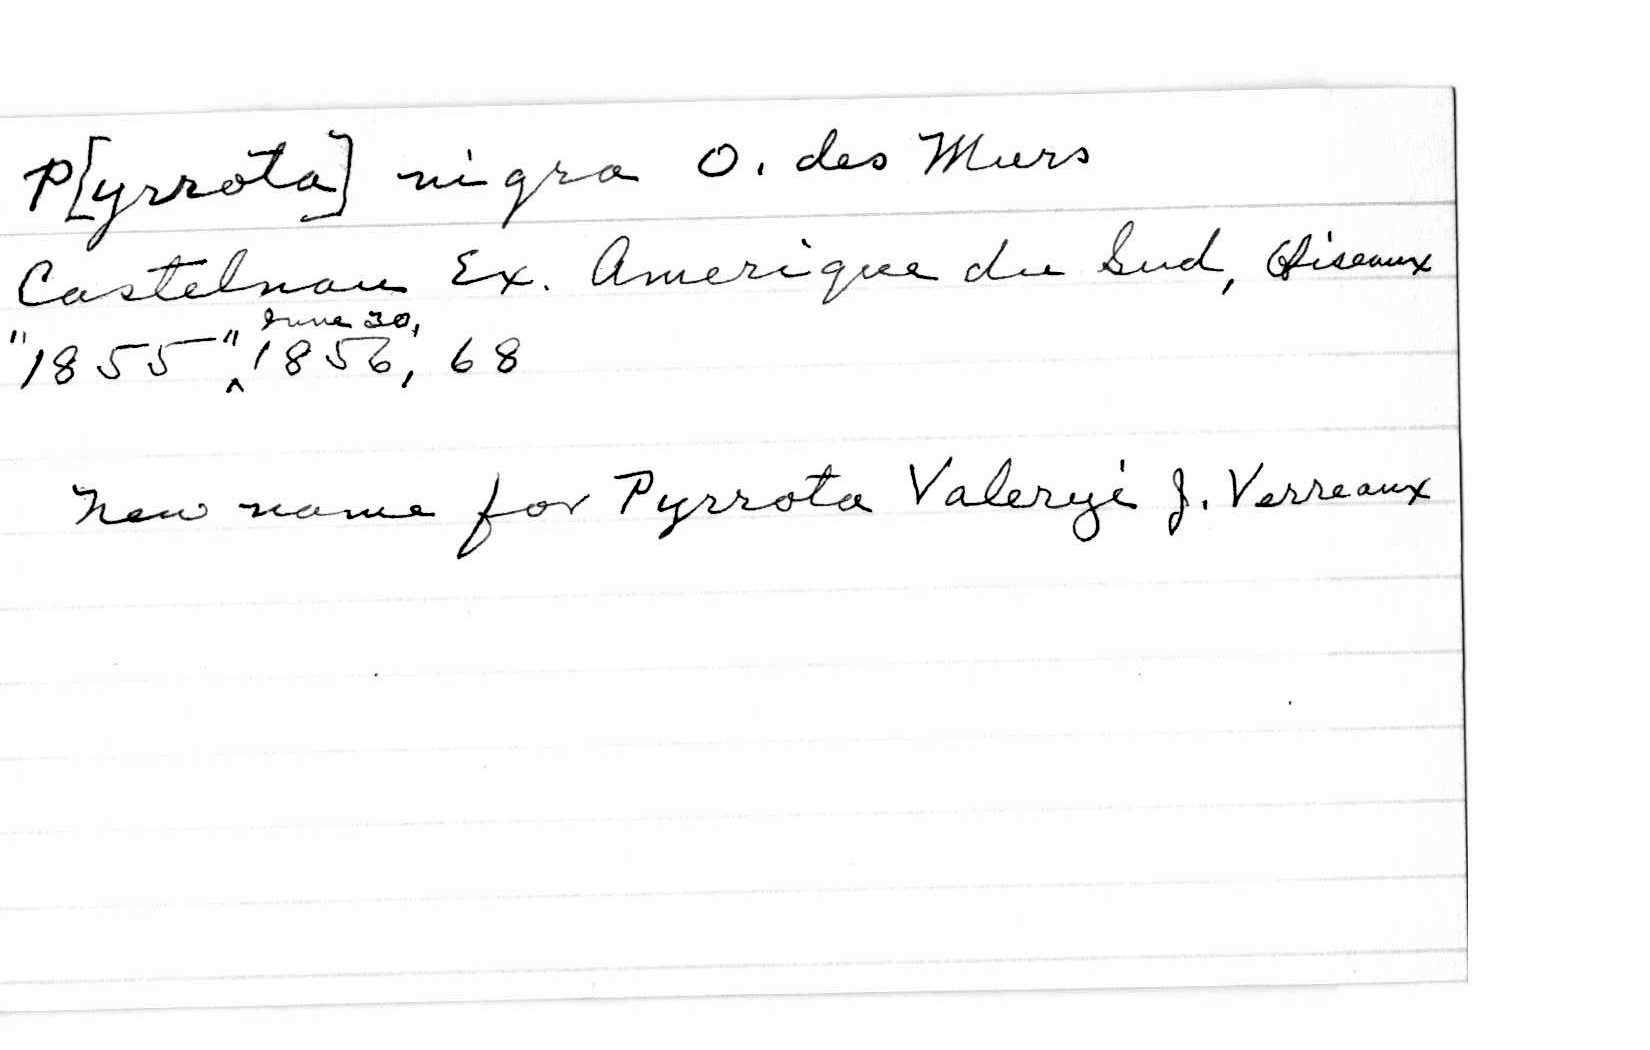 P[yrrota] nigra O. des Murs
Castelnau Ex. Amerique du Sud, Oiseaux
"1855", June 30, 1856, 68
New name for Pyrrota Valeryi J. Verreaux